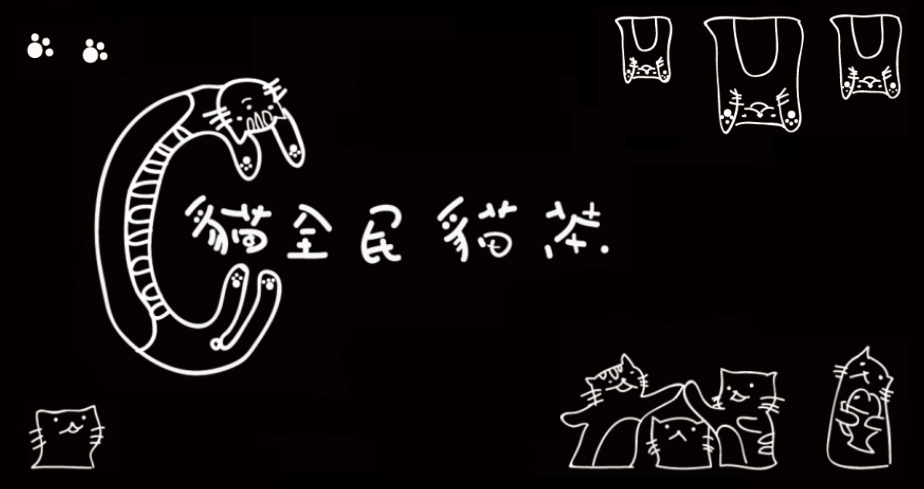 貓全民貓茶.